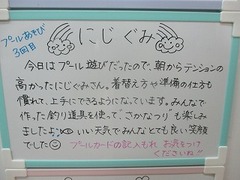 プールあそび
3回目
にじぐみ
今日はプール遊びだったので、朝からテンションの
高かったにじぐみさん。着替え方や準備の仕方も
慣れて、上手にできるようになっています。みんなで
作った釣り道具を使って、"さかなつり"も楽しみ
ました♪ いい天気でみんなとても良い笑顔
でした
プールカードの記入もれ お気をつけ
くださいね!!